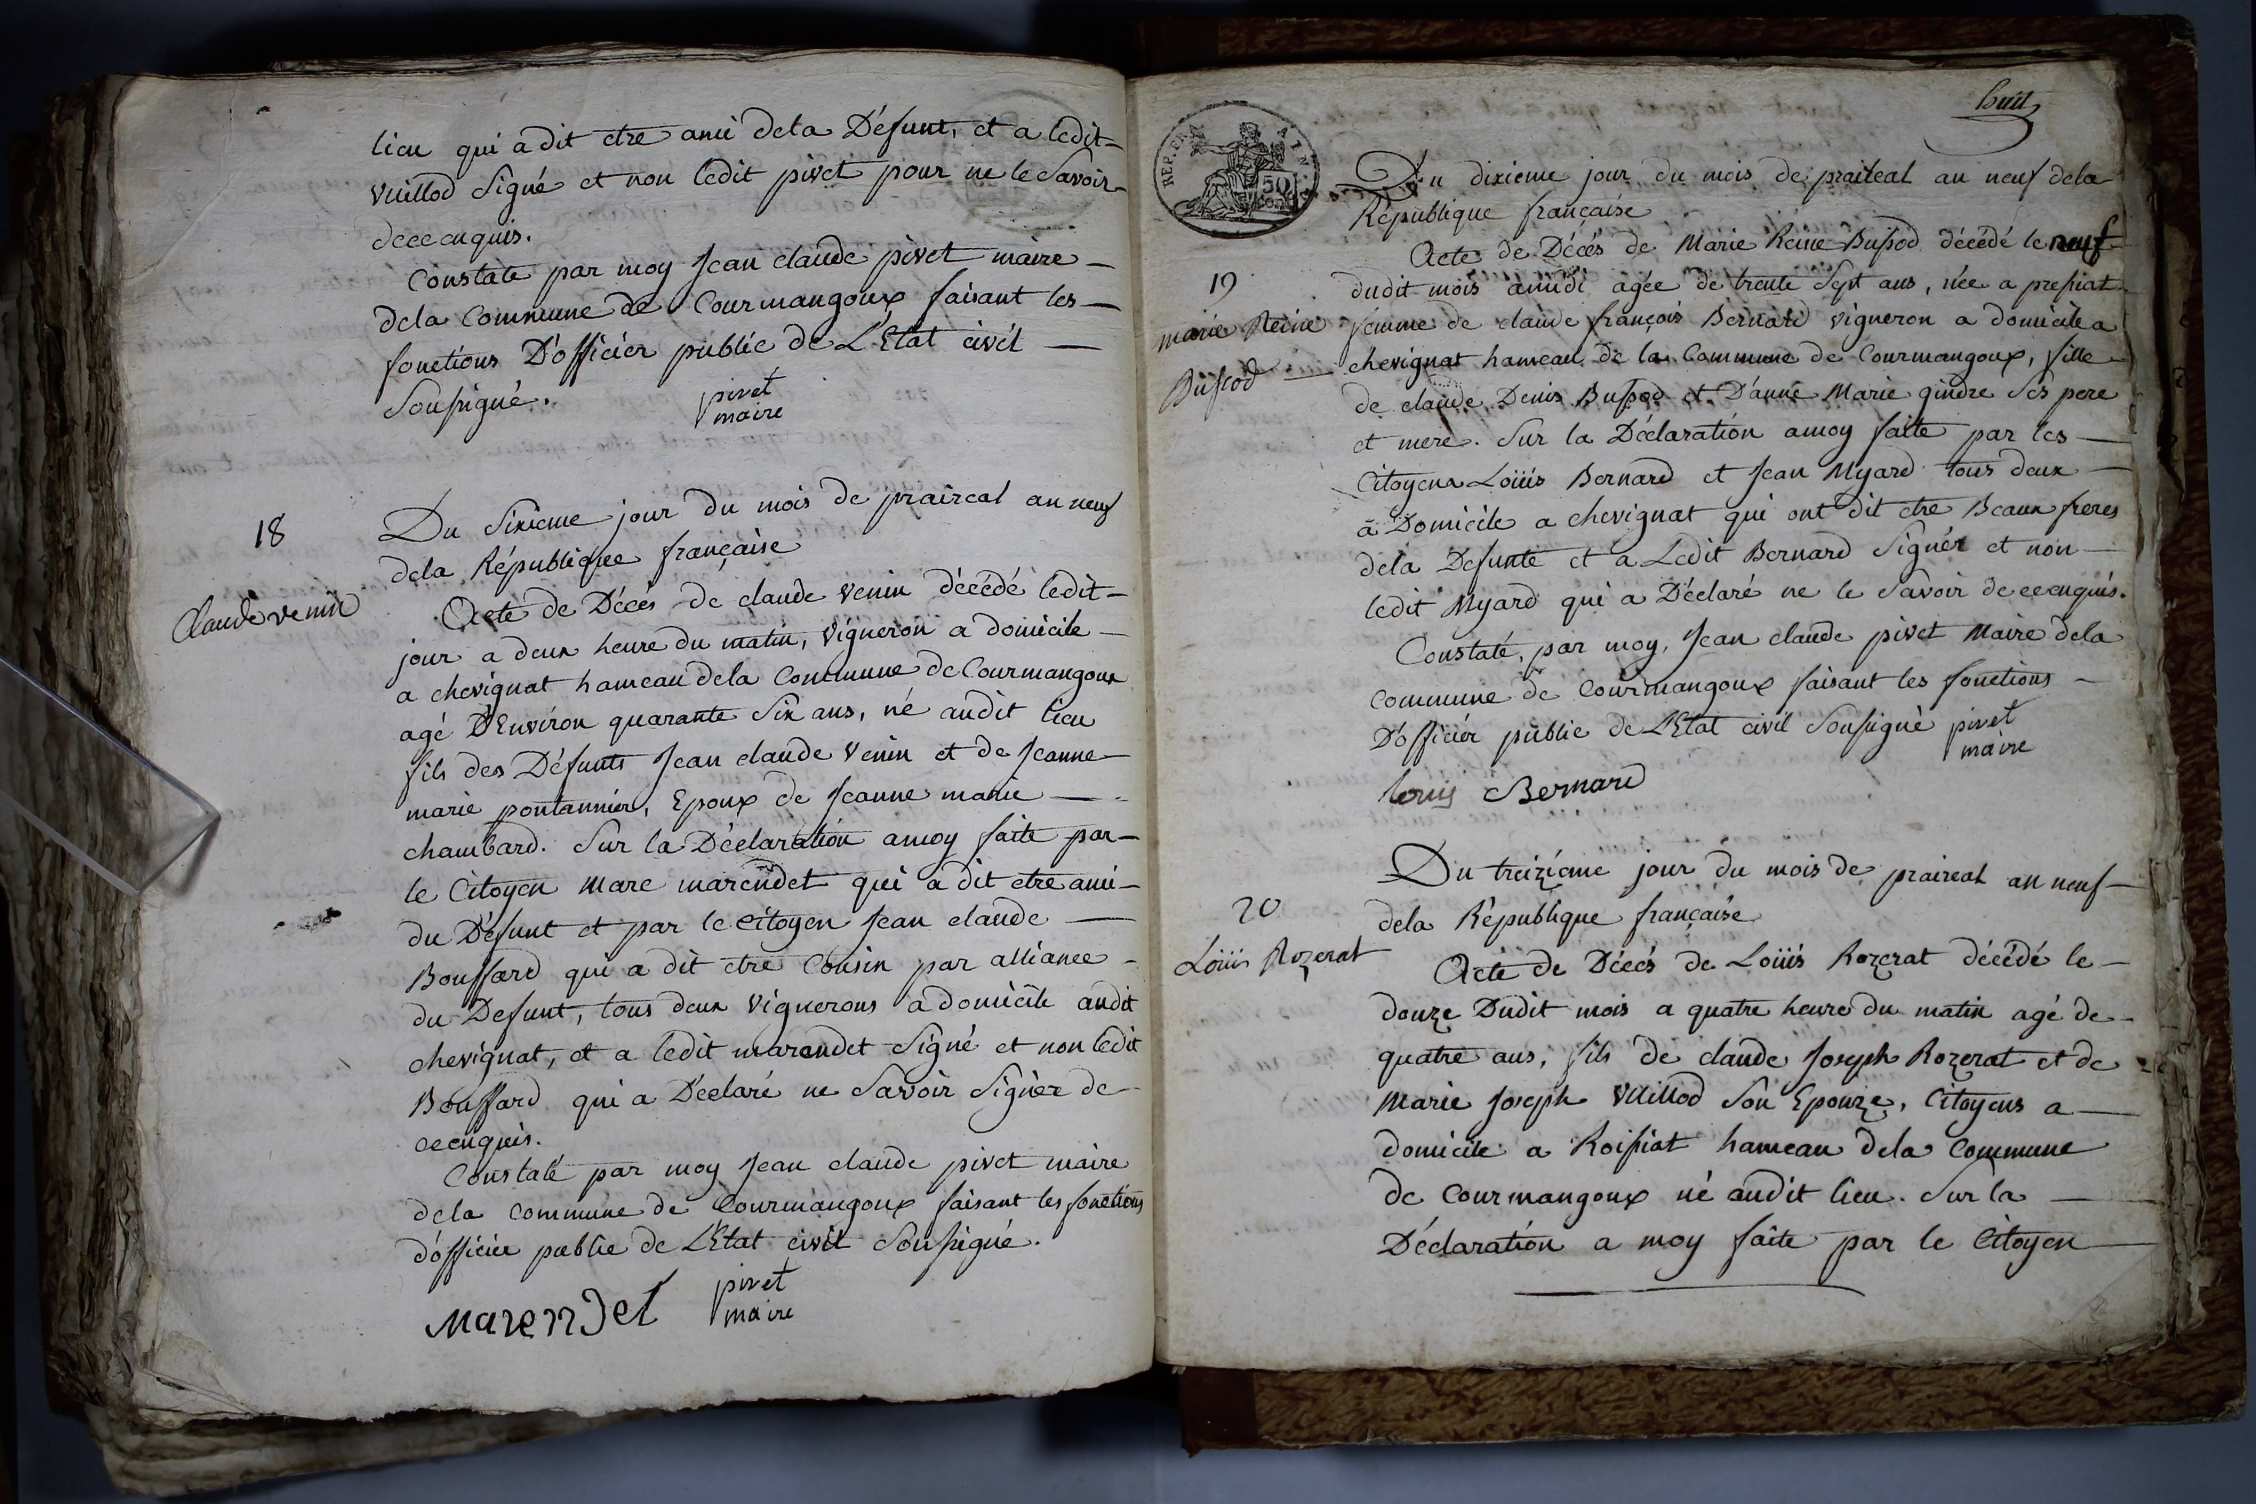 lieu qui a dit etre ami dela Défunt, et a ledit
vuillod Signé et non ledit pivet pour ne le Savoir
deceenquis.
Constaté par moy Jean claude pivet maire
dela Commune de Courmangoux faisant les
fonctions D'officier public de L'Etat civil
Soussigné.
pivet
maire
18
Claude venin
Du Sixieme jour du mois de praireal an neuf
dela République française
Acte de Décés de claude venin décédé ledit
jour a deux heure du matin, vigneron a domicile
a chevignat hameau dela Commune de Courmangoux
agé D'Environ quarante Six ans, né audit lieu
fils des Défunts Jean claude venin et de Jeanne
marie pontannier, Epoux de Jeanne marie
chambard. Sur la Déclaration amoy faite par
le Citoyen Marc marendet qui a dit etre ami
du Défunt et par le citoyen Jean claude
Bouffard qui a dit etre Cousin par alliance
du Defunt, tous deux vignerons a domicile audit
chevignat, et a ledit marendet Signé et non ledit
Bouffard qui a Déclaré ne Savoir Signer de
ceenquis.
Constaté par moy Jean claude pivet maire
dela commune de Courmangoux faisant les fonctions
d'officier public de L'Etat civil Soussigné.
Marendet
pivet
maire
huit
REP. FRA
50
CEN
Du dixieme jour du mois de praireal an neuf dela
République française
19
marie Reine
Bussod
Acte de Décés de Marie Reine Bussod décédé le neuf
dudit mois amidi agée de trente Sept ans, née a pressiat
femme de claude françois Bernard vigneron a domicile a
chevignat hameau de la Commune de Courmangoux, fille
de claude Denis Bussod et D'anne Marie gindre Ses pere
et mere. Sur la Déclaration amoy faite par les
Citoyens Loüis Bernard et Jean Myard tous deux
a Domicile a chevignat qui ont dit etre Beaux freres
dela Defunte et a Ledit Bernard Signér et non
ledit Myard qui a Déclaré ne le Savoir deceenquis.
Constaté, par moy, Jean claude pivet Maire dela
Commune de Courmangoux faisant les fonctions
D'officier public de L'Etat civil Soussigné
pivet
maire
louis Bernard
20
Loüis Rozerat
Du treizieme jour du mois de praireal an neuf
dela République française
Acte de Décés de Loüis Rozerat décédé le
douze Dudit mois a quatre heure du matin agé de
quatre ans, fils de claude Joseph Rozerat et de
Marie Joseph vuillod Son Epouze, Citoyens a
domicile a Roissiat hameau dela Commune
de Courmangoux né audit lieu. Sur la
Déclaration a moy faite par le Citoyen